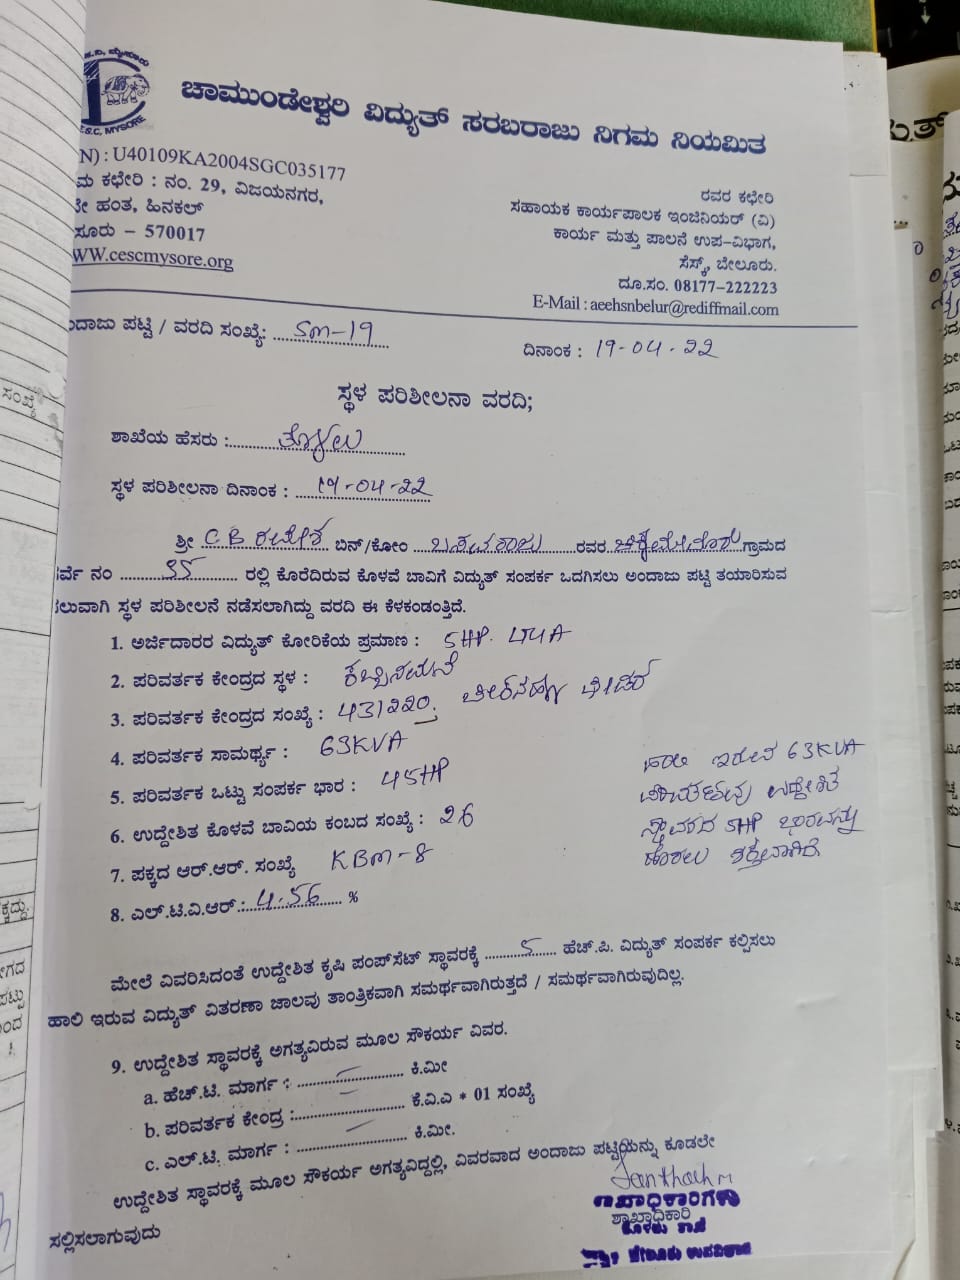 C.E.S.C, MYSORE
ಚಾಮುಂಡೇಶ್ವರಿ ವಿದ್ಯುತ್ ಸರಬರಾಜು ನಿಗಮ ನಿಯಮಿತ
N) : U40109KA2004SGC035177
ಮ ಕಛೇರಿ : ನಂ. 29, ವಿಜಯನಗರ,
ನೇ ಹಂತ, ಹಿನಕಲ್
ಸೂರು – 570017
WWW.cescmysore.org
ರವರ ಕಛೇರಿ
ಸಹಾಯಕ ಕಾರ್ಯಪಾಲಕ ಇಂಜಿನಿಯರ್ (ವಿ)
ಕಾರ್ಯ ಮತ್ತು ಪಾಲನೆ ಉಪ-ವಿಭಾಗ,
ಸೆಸ್ಕ್, ಬೇಲೂರು.
ದೂ.ಸಂ. 08177-222223
E-Mail : aeehsnbelur@rediffmail.com
ಂದಾಜು ಪಟ್ಟಿ / ವರದಿ ಸಂಖ್ಯೆ: SM-19
ದಿನಾಂಕ : 19-04-22
ಸ್ಥಳ ಪರಿಶೀಲನಾ ವರದಿ;
ಶಾಖೆಯ ಹೆಸರು : ತೊಳಲು
ಸ್ಥಳ ಪರಿಶೀಲನಾ ದಿನಾಂಕ : 19-04-22
ಶ್ರೀ C B ಬಿನ್/ಕೋಂ ಬಸವರಾಜು ರವರ ಗ್ರಾಮದ
ರ್ವೆ ನಂ 55 ರಲ್ಲಿ ಕೊರೆದಿರುವ ಕೊಳವೆ ಬಾವಿಗೆ ವಿದ್ಯುತ್ ಸಂಪರ್ಕ ಒದಗಿಸಲು ಅಂದಾಜು ಪಟ್ಟಿ ತಯಾರಿಸುವ
ಲುವಾಗಿ ಸ್ಥಳ ಪರಿಶೀಲನೆ ನಡೆಸಲಾಗಿದ್ದು ವರದಿ ಈ ಕೆಳಕಂಡಂತ್ತಿದೆ.
1. ಅರ್ಜಿದಾರರ ವಿದ್ಯುತ್ ಕೋರಿಕೆಯ ಪ್ರಮಾಣ : 5HP LT4A
2. ಪರಿವರ್ತಕ ಕೇಂದ್ರದ ಸ್ಥಳ : ಕಬ್ಬಿನಮನೆ
3. ಪರಿವರ್ತಕ ಕೇಂದ್ರದ ಸಂಖ್ಯೆ : 431220,
4. ಪರಿವರ್ತಕ ಸಾಮರ್ಥ್ಯ : 63KVA
5. ಪರಿವರ್ತಕ ಒಟ್ಟು ಸಂಪರ್ಕ ಭಾರ : 45HP
6. ಉದ್ದೇಶಿತ ಕೊಳವೆ ಬಾವಿಯ ಕಂಬದ ಸಂಖ್ಯೆ : 26
7. ಪಕ್ಕದ ಆರ್.ಆರ್. ಸಂಖ್ಯೆ KBM-8
8. ಎಲ್.ಟಿ.ವಿ.ಆರ್ : 4.56 %
ಹಾಲಿ ಇರುವ 63KVA
ಪರಿವರ್ತಕವು ಉದ್ದೇಶಿತ
ಸ್ಥಾವರದ 5HP ಭಾರವನ್ನು
ಹೊರಲು ಶಕ್ತವಾಗಿದೆ
ಮೇಲೆ ವಿವರಿಸಿದಂತೆ ಉದ್ದೇಶಿತ ಕೃಷಿ ಪಂಪ್‌ಸೆಟ್ ಸ್ಥಾವರಕ್ಕೆ 5 ಹೆಚ್.ಪಿ. ವಿದ್ಯುತ್ ಸಂಪರ್ಕ ಕಲ್ಪಿಸಲು
ಹಾಲಿ ಇರುವ ವಿದ್ಯುತ್ ವಿತರಣಾ ಜಾಲವು ತಾಂತ್ರಿಕವಾಗಿ ಸಮರ್ಥವಾಗಿರುತ್ತದೆ / ಸಮರ್ಥವಾಗಿರುವುದಿಲ್ಲ.
9. ಉದ್ದೇಶಿತ ಸ್ಥಾವರಕ್ಕೆ ಅಗತ್ಯವಿರುವ ಮೂಲ ಸೌಕರ್ಯ ವಿವರ.
a. ಹೆಚ್.ಟಿ. ಮಾರ್ಗ : — ಕಿ.ಮೀ
b. ಪರಿವರ್ತಕ ಕೇಂದ್ರ : — ಕೆ.ವಿ.ಎ * 01 ಸಂಖ್ಯೆ
c. ಎಲ್.ಟಿ. ಮಾರ್ಗ : — ಕಿ.ಮೀ.
ಉದ್ದೇಶಿತ ಸ್ಥಾವರಕ್ಕೆ ಮೂಲ ಸೌಕರ್ಯ ಅಗತ್ಯವಿದ್ದಲ್ಲಿ, ವಿವರವಾದ ಅಂದಾಜು ಪಟ್ಟಿಯನ್ನು ಕೂಡಲೇ
ಸಲ್ಲಿಸಲಾಗುವುದು
ಶಾಖಾಧಿಕಾರಿಗಳು
ಶಾಖಾಧಿಕಾರಿ
ತೊಳಲು ಶಾಖೆ
ಬೇಲೂರು ಉಪವಿಭಾಗ